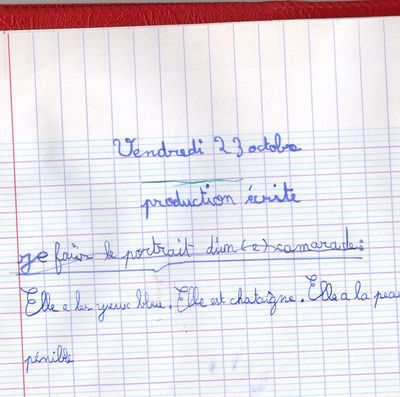 Vendredi 23 octobre
production écrite
je faire le portrait d'un(e) camarade :
Elle a les yeux bleu. Elle est chataîgne. Elle a la peau
pénible